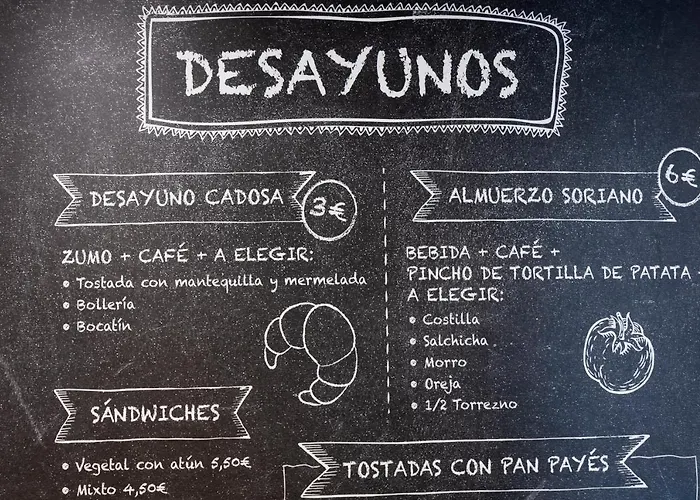 DESAYUNOS
DESAYUNO CADOSA
3€
ZUMO + CAFÉ + A ELEGIR:
• Tostada con mantequilla y mermelada
• Bollería
• Bocatín
SÁNDWICHES
• Vegetal con atún 5,50€
• Mixto 4,50€
ALMUERZO SORIANO
6€
BEBIDA + CAFÉ +
PINCHO DE TORTILLA DE PATATA
A ELEGIR:
• Costilla
• Salchicha
• Morro
• Oreja
• 1/2 Torrezno
TOSTADAS CON PAN PAYÉS